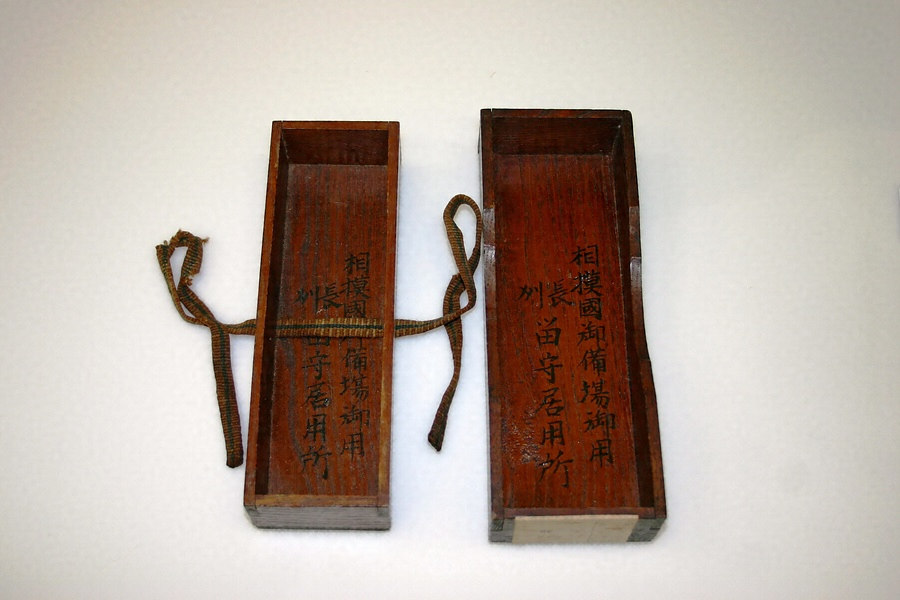 相摸國御備場御用
長州
留守居用所
相摸國御備場御用
長州
留守居用所